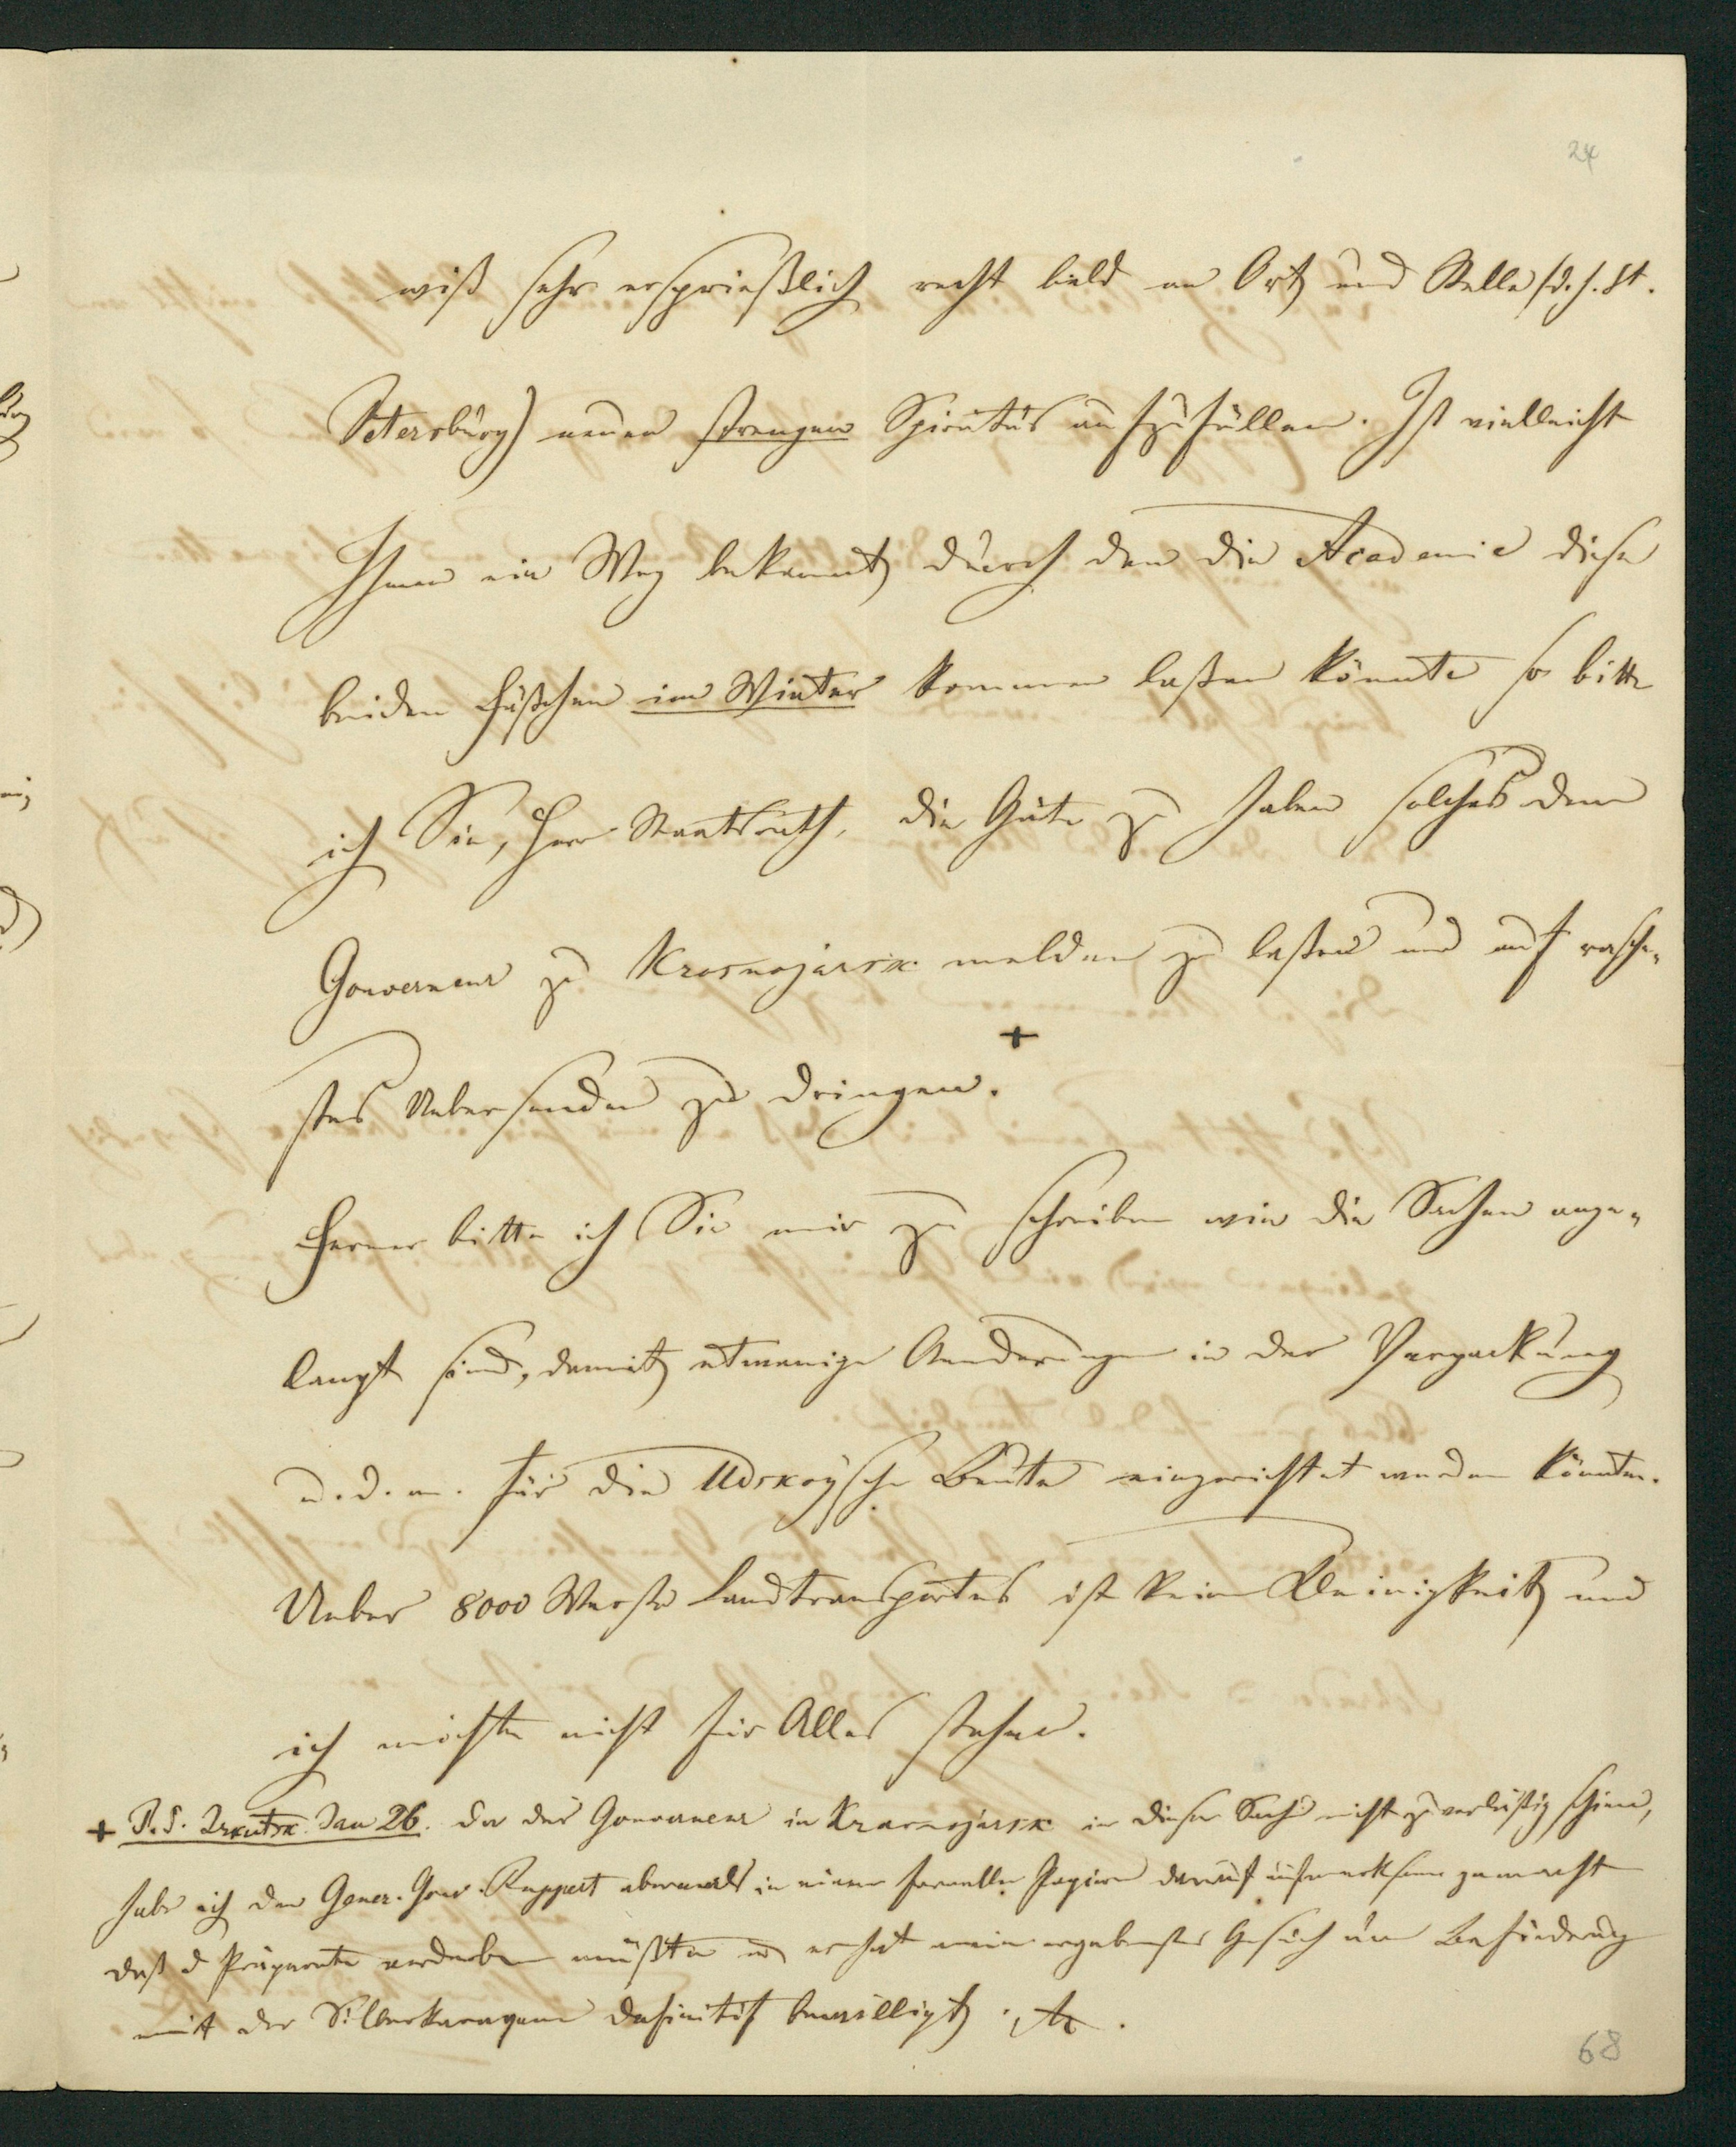 24
wiß sehr ersprießlich recht bald an Ort und Stelle (d. h. St.
Petersburg) neuen strengen Spiritus aufzufüllen. Ist vielleicht
Ihnen ein Weg bekannt durch den die Academie diese
beiden Fäßchen im Winter kommen laßen könnte so bitte
ich Sie, Herr Staatsrath, die Güte zu haben solches dem
Gouverneur zu Krasnojarsk melden zu laßen und auf rasche-
stes Uebersenden zu dringen. +
Ferner bitte ich Sie mir zu schreiben wie die Sachen ange-
langt sind, damit etwanige Aenderungen in der Verpackung
u. d. m. für die Udskoysche Beute eingerichtet werden könnten.
Ueber 8000 Werste Landtransportes ist keine Kleinigkeit und
ich möchte nicht für Alles stehen.
+ P.S. Irkutsk Jan 26. Da der Gouverneur in Krasnojarsk in dieser Sache nicht zuverläßig schien,
habe ich den Gener. Gouv. Ruppert abermals in einem formellen Papiere darauf aufmerksam gemacht
daß d Präparate verderben müßten und er hat mein ergebenstes Gesuch um Beförderung
mit der Silberkaravane definitif bewilligt.
68